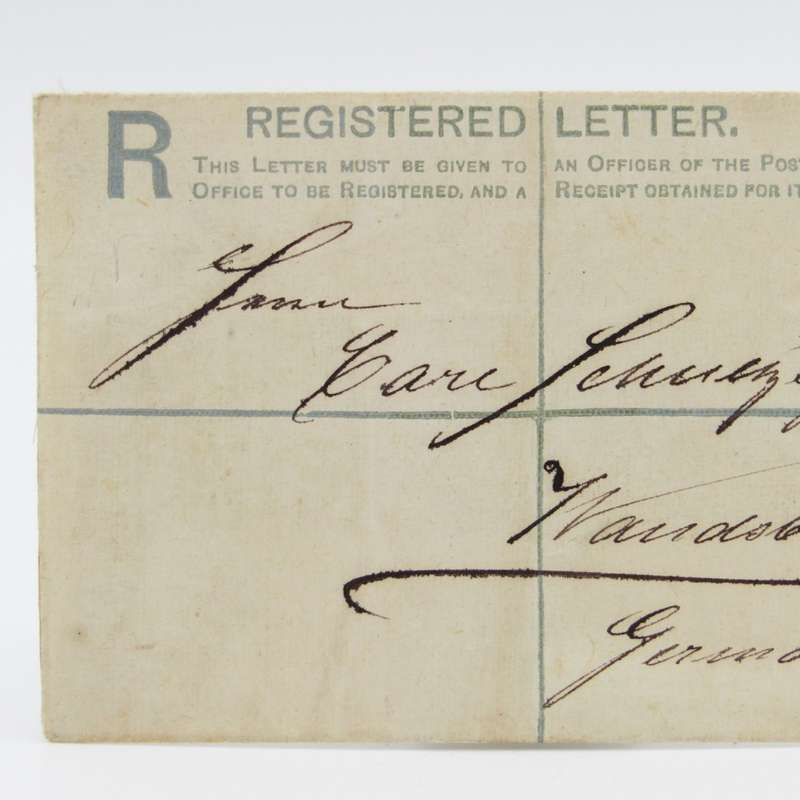 R REGISTERED LETTER.
THIS LETTER MUST BE GIVEN TO AN OFFICER OF THE POST
OFFICE TO BE REGISTERED, AND A RECEIPT OBTAINED FOR IT
Herrn
Carl Schuetze
Wandsb
Germa